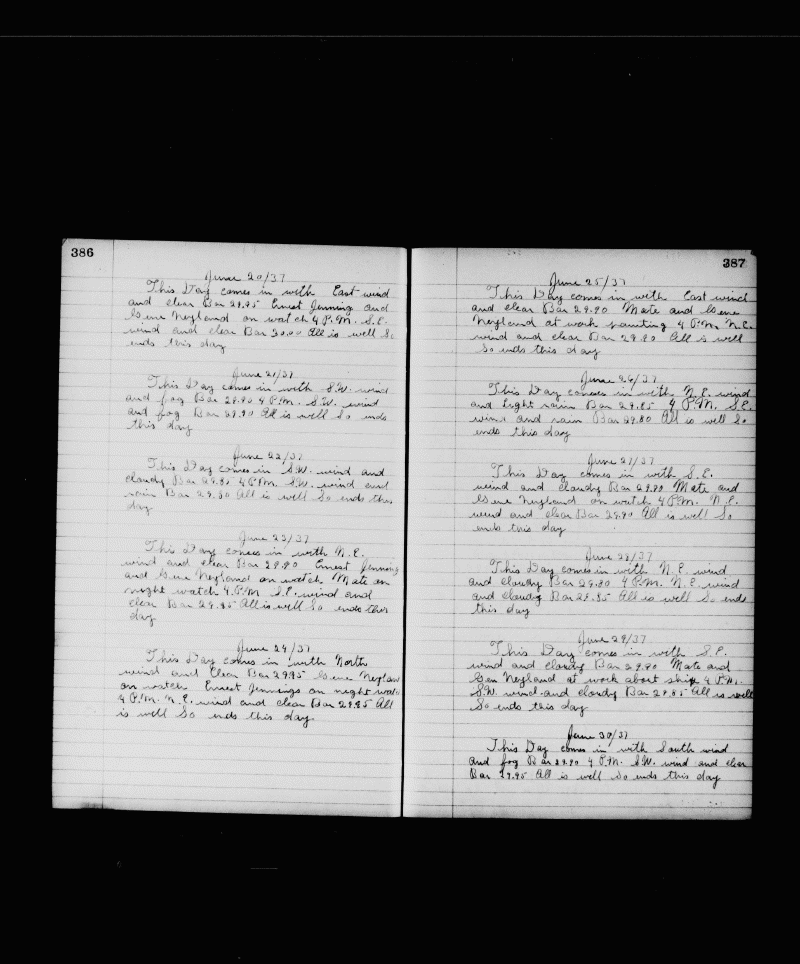 386
June 20/37
This Day comes in with East wind
and clear Bar 29.95 Ernest Jenning and
Gene Neyland on watch 4 P.M. S.E.
wind and clear Bar 30.00 All is well So
ends this day
June 21/37
This Day comes in with S.W. wind
and fog Bar 29.90 4 P.M. S.W. wind
and fog Bar 29.90 All is well So ends
this day
June 22/37
This Day comes in S.W. wind and
cloudy Bar 29.85 4 P.M. S.W. wind and
rain Bar 29.80 All is well So ends this
day
June 23/37
This Day comes in with N.E.
wind and clear Bar 29.90 Ernest Jenning
and Gene Neyland on watch Mate on
night watch 4 P.M. S.E. wind and
clear Bar 29.95 All is well So ends this
day
June 24/37
This Day comes in with North
wind and Clear Bar 29.95 Gene Neylan
on watch Ernest Jennings on night wat
4 P.M. N.E. wind and clear Bar 29.95 All
is well So ends this day.
387
June 25/37
This Day comes in with East wind
and clear Bar 29.90 Mate and Gene
Neyland at work painting 4 P.M. N.E.
wind and clear Bar 29.80 All is well
So ends this day
June 26/37
This Day comes in with N.E. wind
and Light rain Bar 29.85 4 P.M. S.E.
wind and rain Bar 29.80 All is well So
ends this day
June 27/37
This Day comes in with S.E.
wind and cloudy Bar 29.90 Mate and
Gene Neyland on watch 4 P.M. N.E.
wind and clear Bar 29.90 All is well So
ends this day
June 28/37
This Day comes in with N.E. wind
and cloudy Bar 29.80 4 P.M. N.E. wind
and cloudy Bar 29.85 All is well So ends
this day
June 29/37
This Day comes in with S.E.
wind and cloudy Bar 29.90 Mate and
Gen Neyland at work about ship 4 P.M.
S.W. wind and cloudy Bar 29.85 All is well
So ends this day
June 30/37
This Day comes in with South wind
and fog Bar 29.90 4 P.M. S.W. wind and clear
Bar 29.95 All is well So ends this day